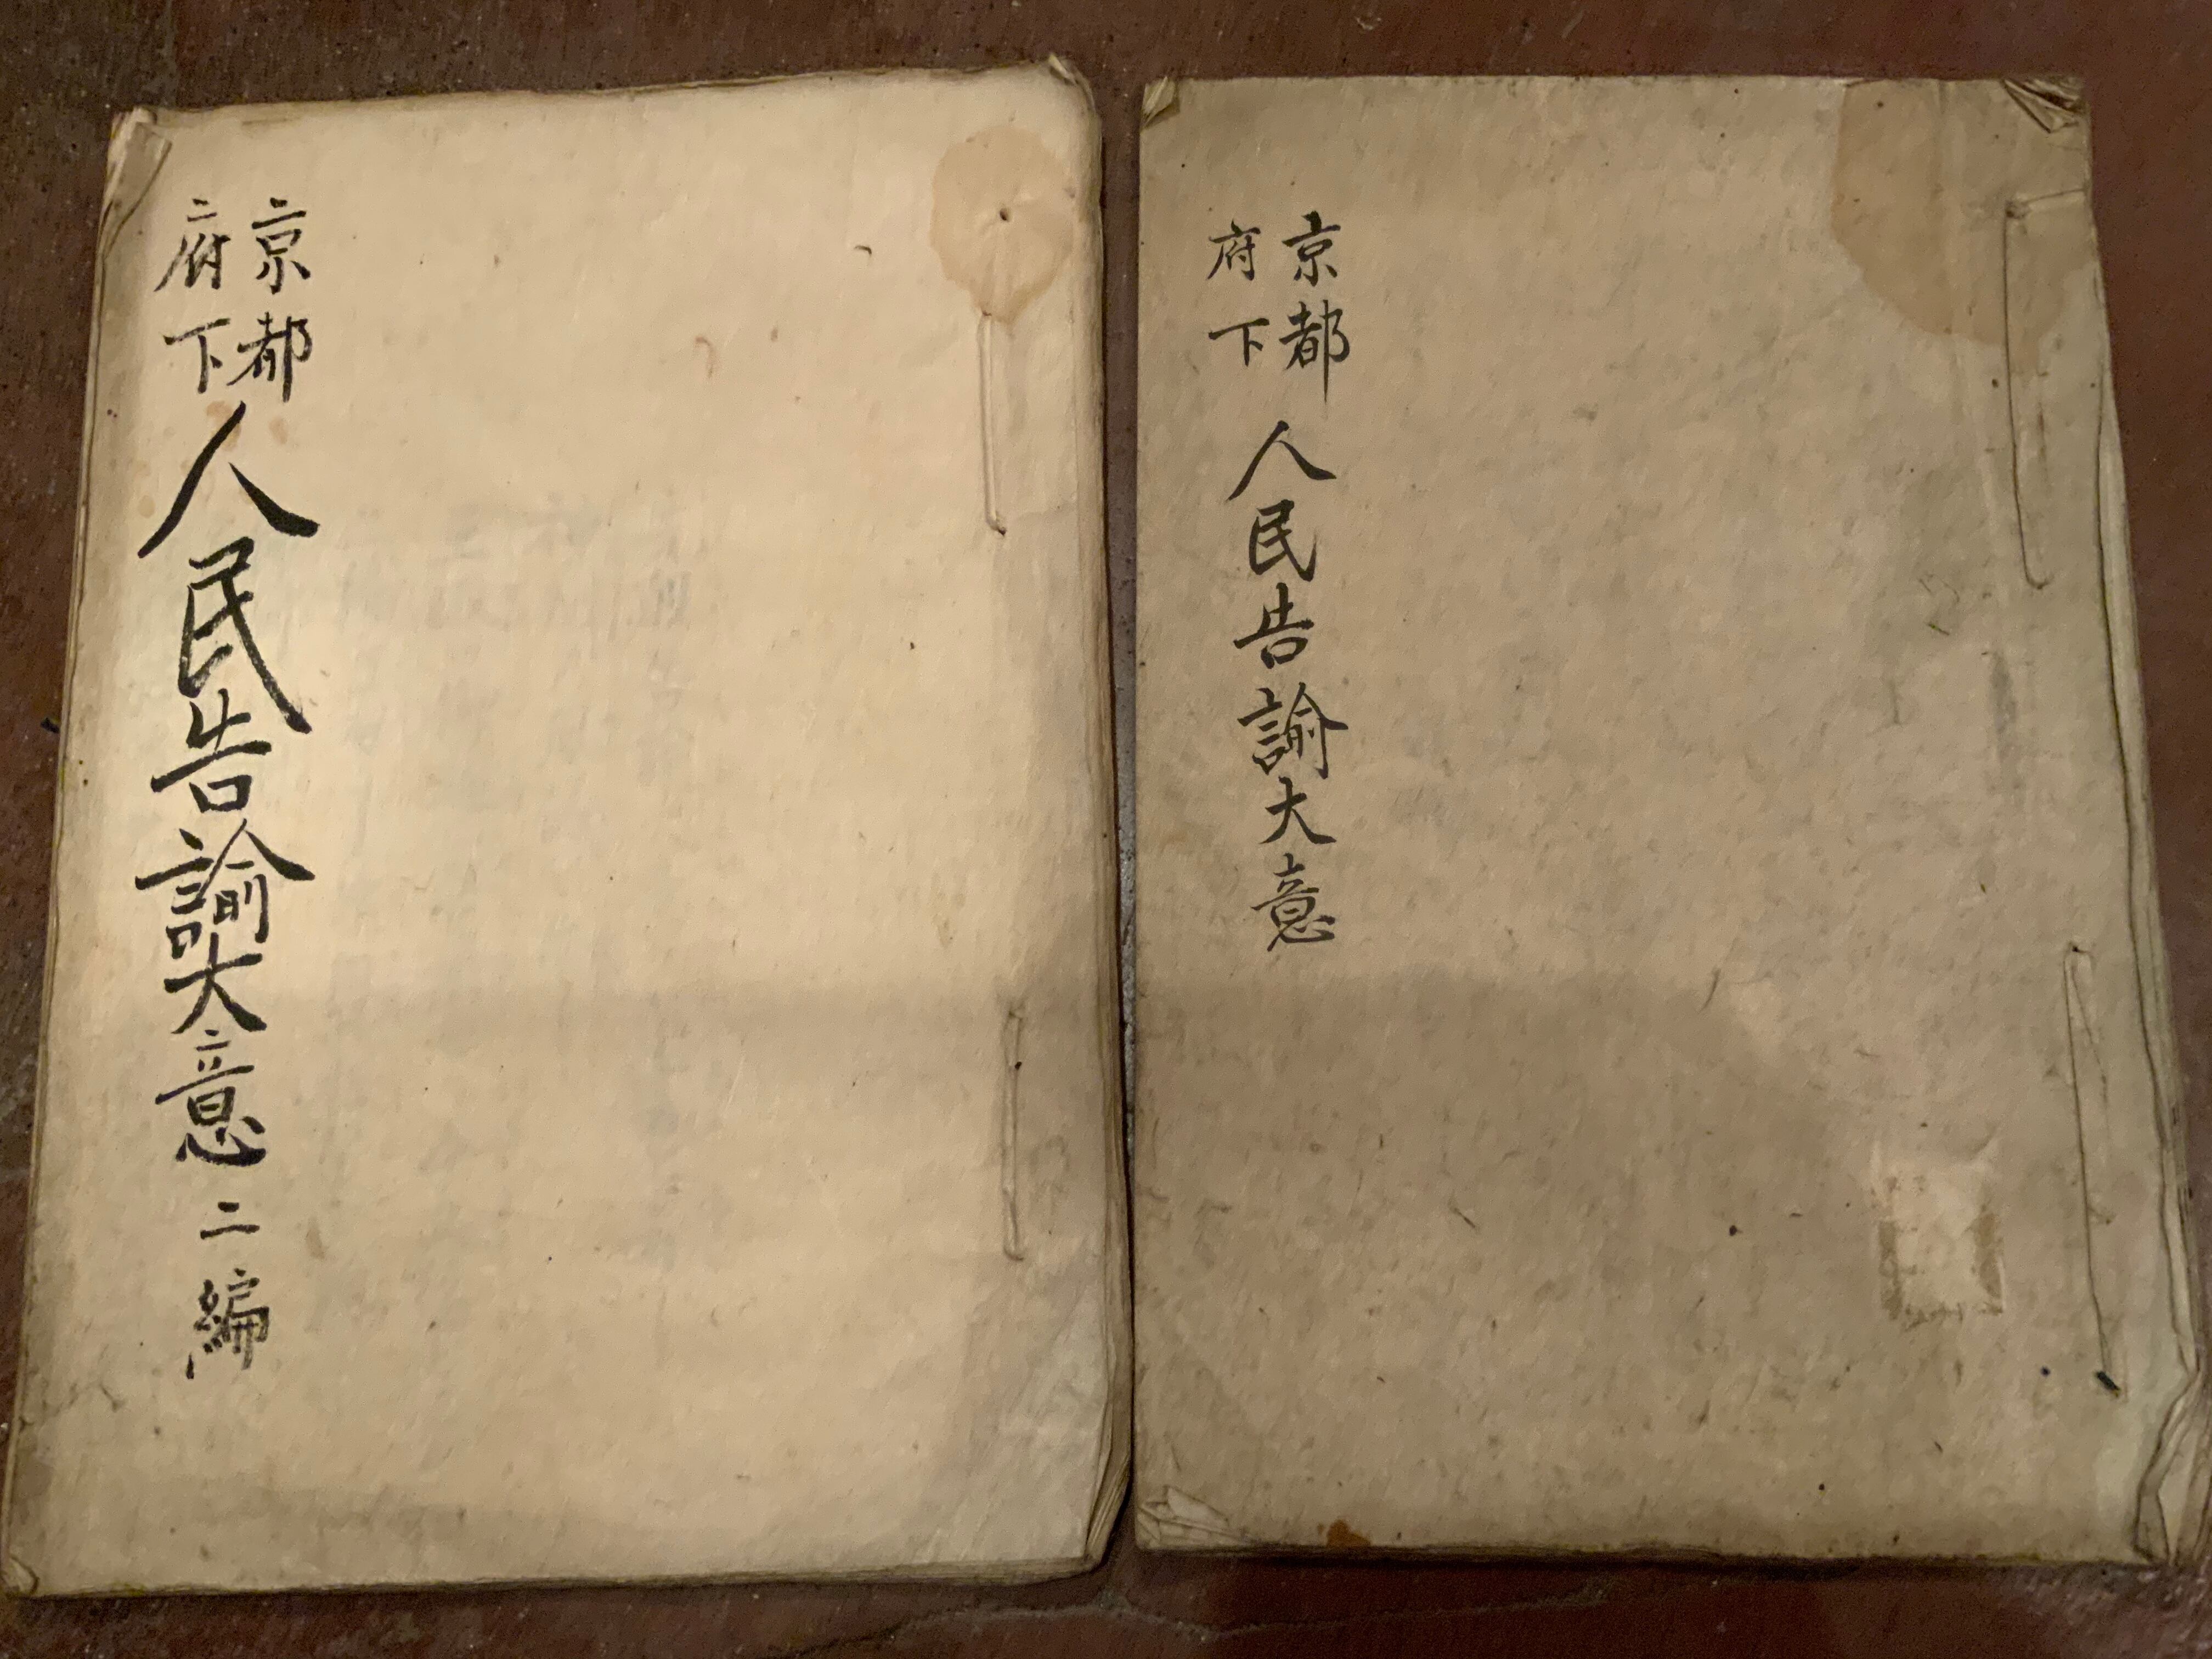 京都
府下
人民告諭大意
京都
府下
人民告諭大意二編